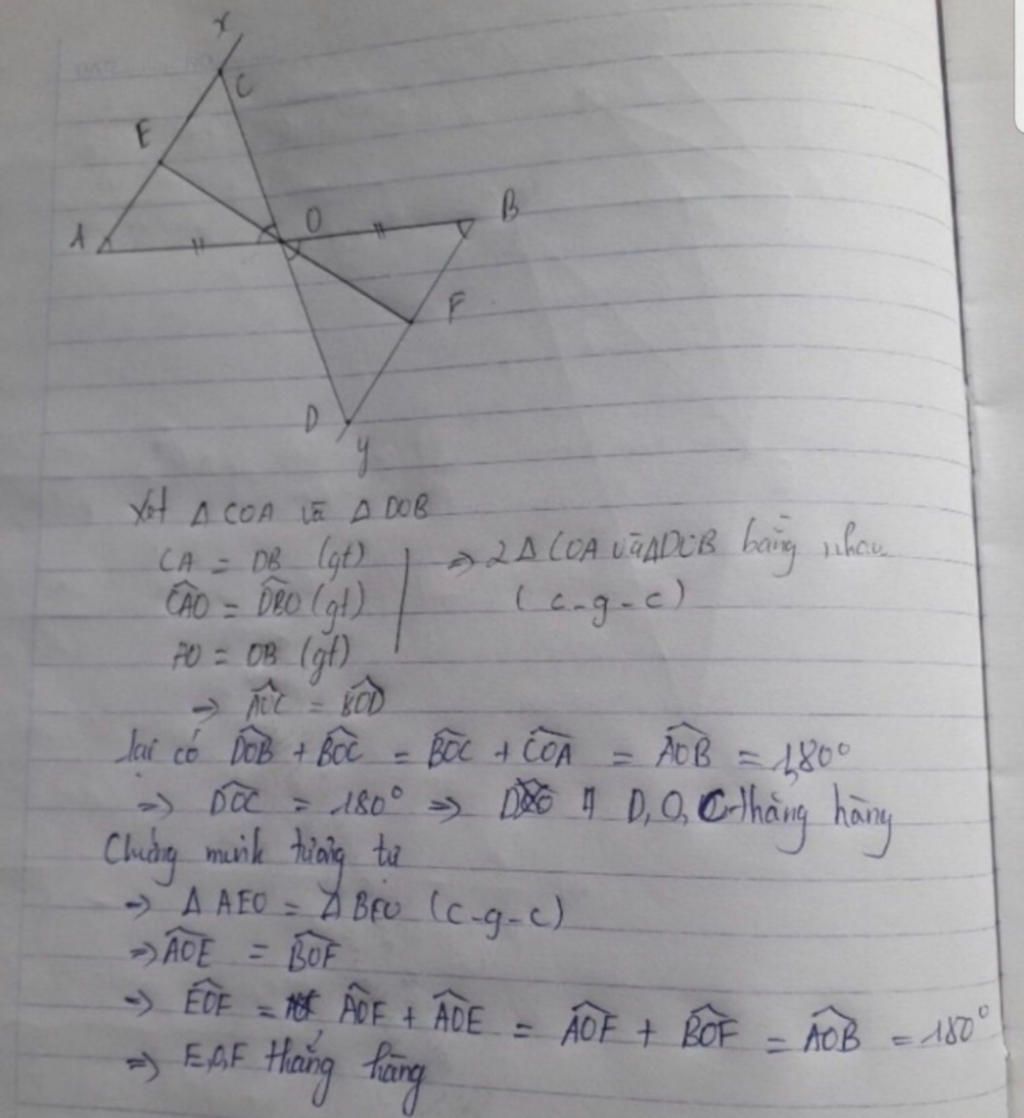 x
C
E
A
O
B
F
D
y
Xét Δ COA và Δ DOB
CA = DB (gt)
⇒ 2 Δ COA và Δ DOB bằng nhau
\widehat{CAO} = \widehat{DBO} (gt)
(c-g-c)
AO = OB (gt)
⇒ \widehat{AOC} = \widehat{BOD}
lại có \widehat{DOB} + \widehat{BOC} = \widehat{BOC} + \widehat{COA} = \widehat{AOB} = 180°
⇒ \widehat{DOC} = 180° ⇒ D, O, C thẳng hàng
Chứng minh tương tự
⇒ Δ AEO = Δ BFO (c-g-c)
⇒ \widehat{AOE} = \widehat{BOF}
⇒ \widehat{EOF} = \widehat{AOF} + \widehat{AOE} = \widehat{AOF} + \widehat{BOF} = \widehat{AOB} = 180°
⇒ E,O,F thẳng hàng